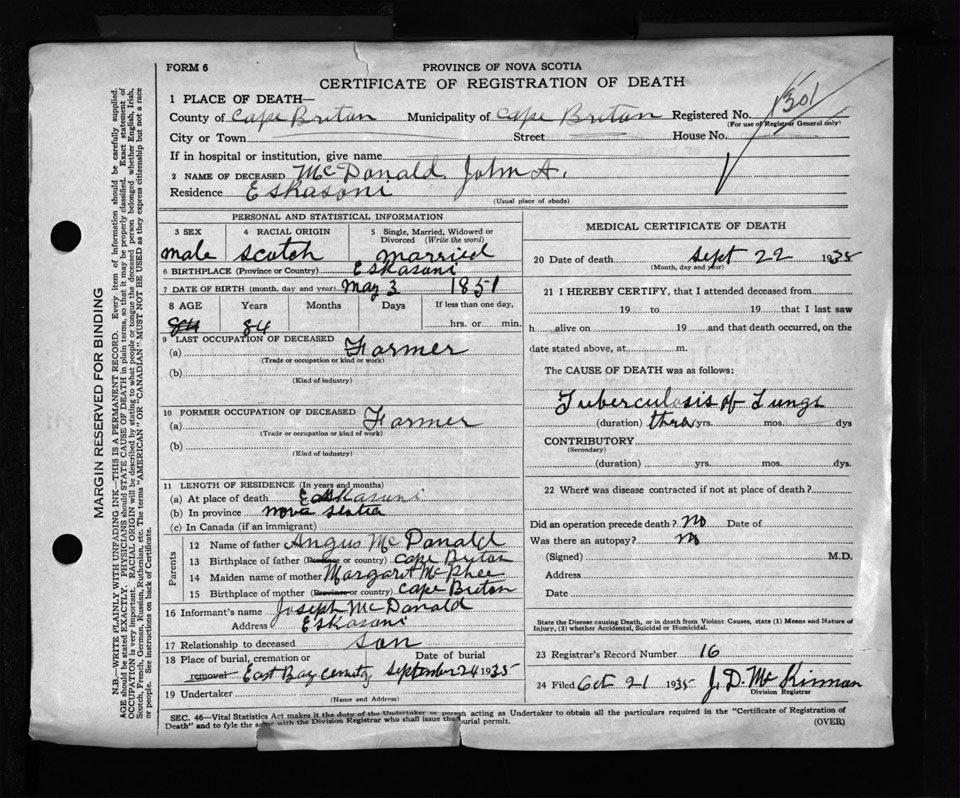 FORM 6
PROVINCE OF NOVA SCOTIA
CERTIFICATE OF REGISTRATION OF DEATH
1 PLACE OF DEATH—
County of Cape Breton Municipality of Cape Breton Registered No. 1301
(For use of Registrar General only)
City or Town Street House No.
If in hospital or institution, give name
2 NAME OF DECEASED McDonald John A.
Residence Eskasoni
(Usual place of abode)
PERSONAL AND STATISTICAL INFORMATION
3 SEX 4 RACIAL ORIGIN 5 Single, Married, Widowed or Divorced (Write the word)
male scotch married
6 BIRTHPLACE (Province or Country) Eskasoni
7 DATE OF BIRTH (month, day and year) May 3 1851
8 AGE Years Months Days If less than one day,
84 84 hrs. or min.
9 LAST OCCUPATION OF DECEASED
(a) Farmer
(Trade or occupation or kind or work)
(b)
(Kind of industry)
10 FORMER OCCUPATION OF DECEASED
(a) Farmer
(Trade or occupation or kind of work)
(b)
(Kind of industry)
11 LENGTH OF RESIDENCE (In years and months)
(a) At place of death Eskasoni
(b) In province nova scotia
(c) In Canada (if an immigrant)
Parents
12 Name of father Angus McDonald
13 Birthplace of father (Province or country) Cape Breton
14 Maiden name of mother Margaret McPhee
15 Birthplace of mother (Province or country) Cape Breton
16 Informant's name Joseph McDonald
Address Eskasoni
17 Relationship to deceased son
18 Place of burial, cremation or removal Date of burial
East Bay September 24 1935
19 Undertaker
(Name and Address)
MEDICAL CERTIFICATE OF DEATH
20 Date of death Sept 22 1935
(Month, day and year)
21 I HEREBY CERTIFY, that I attended deceased from
19 to 19 that I last saw
h alive on 19 and that death occurred, on the
date stated above, at m.
The CAUSE OF DEATH was as follows:
Tuberculosis of Lungs
(duration) yrs. mos. dys
CONTRIBUTORY
(Secondary)
(duration) yrs. mos. dys.
22 Where was disease contracted if not at place of death?
Did an operation precede death? no Date of
Was there an autopsy? no
(Signed) M.D.
Address
Date
State the Disease causing Death, or in death from Violent Causes, state (1) Means and Nature of
Injury, (2) whether Accidental, Suicidal or Homicidal.
23 Registrar's Record Number 16
24 Filed Oct 21 1935 J. D. McKinnon
Division Registrar
SEC. 46—Vital Statistics Act makes it the duty of the Undertaker or person acting as Undertaker to obtain all the particulars required in the "Certificate of Registration of
Death" and to fyle the same with the Division Registrar who shall issue the burial permit.
(OVER)
MARGIN RESERVED FOR BINDING
N.B.—WRITE PLAINLY WITH UNFADING INK—THIS IS A PERMANENT RECORD. Every item of information should be carefully supplied.
AGE should be stated EXACTLY. PHYSICIANS should STATE CAUSE OF DEATH in plain terms, so that it may be properly classified. Exact statement of
OCCUPATION is very important. RACIAL ORIGIN will be described by stating to what people or tongue the deceased person belonged whether English, Irish,
Scotch, French, German, Russian, Ruthenian, etc. The terms "AMERICAN" OR "CANADIAN" MUST NOT BE USED as they express citizenship but not a race
or people. See instructions on back of Certificate.